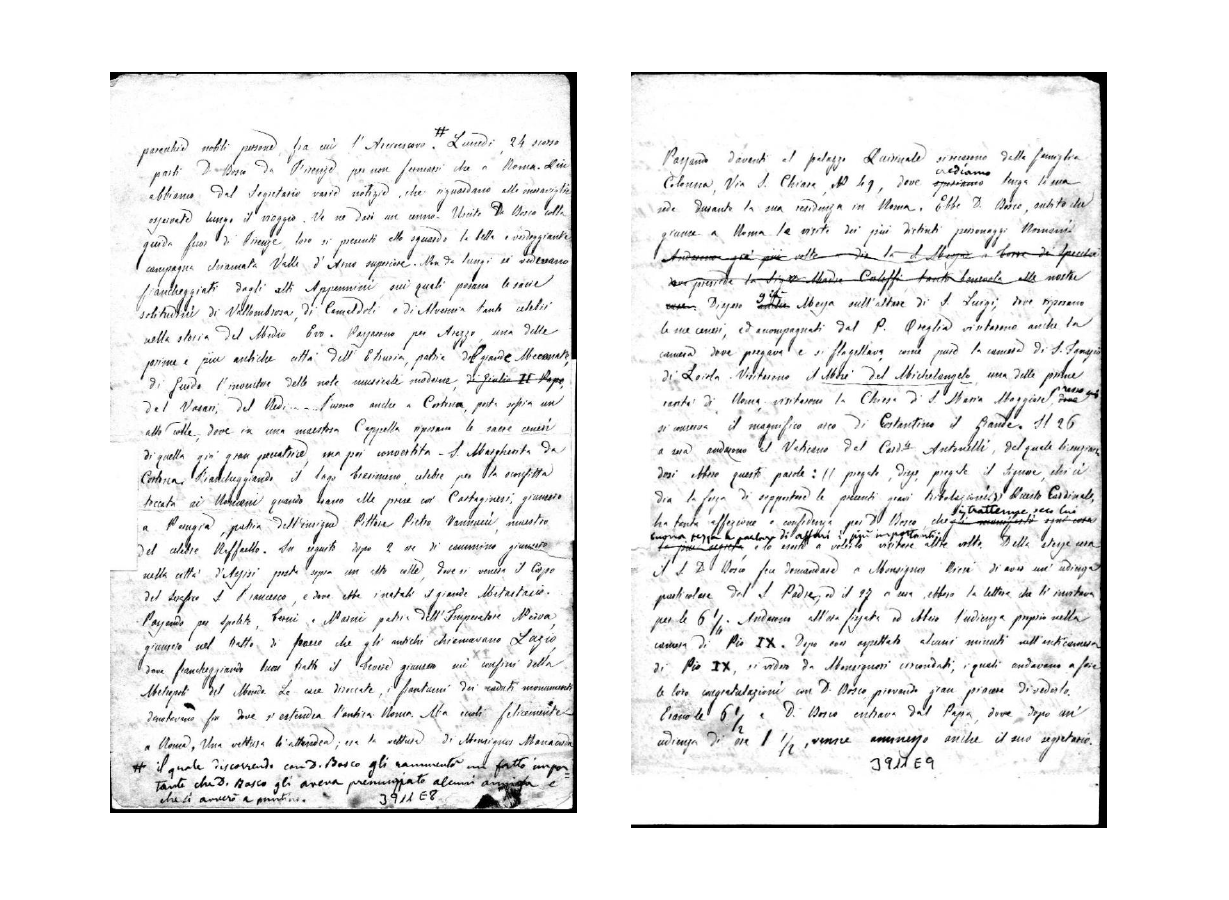 parecchie nobili persone, fra cui l'Arcivescovo. # Lunedì, 24 scorso
partì D. Bosco da Firenze, per non fermarsi che a Roma. Qui
abbiamo dal Segretario varie notizie, che riguardano alle meraviglie
osservate lungo il viaggio. Ve ne darò un cenno. Uscito D. Bosco colla
guida fuori di Firenze, loro si presentò allo sguardo la bella e verdeggiante
campagna chiamata Valle d'Arno superiore. Non da lungi si vedevano
fiancheggiati dagli alti Appennini, sui quali posano le sacre
solitudini di Vallombrosa, di Camaldoli e di Alvernia tanto celebri
nella storia del Medio Evo. Passarono per Arezzo, una delle
prime e più antiche città dell'Etruria, patria del grande Mecenate,
di Guido l'inventore delle note musicali moderne, di Giulio II Papa,
del Vasari, del Redi. Furono anche a Cortona, posta sopra un
alto colle, dove in una maestosa Cappella riposano le sacre ceneri
di quella già gran peccatrice, ma poi convertita S. Margherita da
Cortona. Fiancheggiando il lago Trasimeno celebre per la sconfitta
toccata ai Romani quando erano alle prese coi Cartaginesi, giunsero
a Perugia, patria dell'insigne Pittore Pietro Vannucci, maestro
del celebre Raffaello. In seguito dopo 2 ore di cammino giunsero
nella città d'Assisi posta sopra un alto colle, dove si venera il Corpo
del Serafico S. Francesco, e dove ebbe i natali il grande Metastasio.
Passando per Spoleto, Terni e Narni patria dell'Imperatore Nerva,
giunsero nel tratto di paese che gli antichi chiamavano Lazio,
dove fiancheggiando buon tratto il Tevere giunsero ai confini della
Metropoli del Mondo. Le case diroccate, i frantumi dei caduti monumenti
denotavano fin dove si estendea l'antica Roma. Ma eccoli felicemente
a Roma. Una vettura li attendea; era la vettura di Monsignor Manacorda
# il quale discorrendo con D. Bosco gli rammentò un fatto impor-
tante che D. Bosco gli aveva prenunziato alcuni anni e
che si avverò a puntino.
3911E8
Passano davanti al palazzo Quirinale dalla famiglia
Colonna, Via S. Chiara, N° 49, dove crediamo speriamo tenga la sua
sede durante la sua residenza in Roma. Ebbe D. Bosco, subito che
giunse a Roma le visite dei più distinti personaggi Romani.
Andarono già più volte a dir la S. Messa a Torre de' Specchi
presiede la Sig.ra Madre Galeffi tanto benevola alle nostre
case. Dissero già Messa sull'altare di S. Luigi, dove riposano
le sue ceneri, ed accompagnati dal P. Oreglia visitarono anche la
camera dove pregava e si flagellava come pure la camera di S. Ignazio
di Loiola. Visitarono il Mosè del Michelangelo, una delle prime
rarità di Roma visitarono la Chiesa di S. Maria Maggiore,
si conserva il magnifico arco di Costantino il Grande. Il 26
a sera andarono al Vaticano dal Card.le Antonelli, dal quale
D. Bosco queste parole: Preghi, disse, preghi il Signore, che ci
dia la forza di sopportare le presenti gravi tribolazioni. Questo Cardinale,
ha tanta affezione e confidenza per D. Bosco che si trattenne seco lui
buona pezza a parlare di affari i più importanti
e lo esortò a volerlo visitare altre volte. Della stessa sera
il S. D. Bosco fece domandare a Monsignor Ricci di aver un'udienza
particolare dal S. Padre, ed il 27 a sera ebbero la lettera che li invitava
per le 6 1/4. Andarono all'ora fissata ed ebbero l'udienza proprio nella
camera di Pio IX. Dopo aver aspettato alcuni minuti nell'anticamera
di Pio IX, si videro da Monsignori circondati, i quali andavano a fare
le loro congratulazioni con D. Bosco provando gran piacere di vederlo.
Erano le 6 1/2 e D. Bosco entrava dal Papa, dove dopo un'
udienza di ore 1 1/2, venne ammesso anche il suo segretario.
3911E9